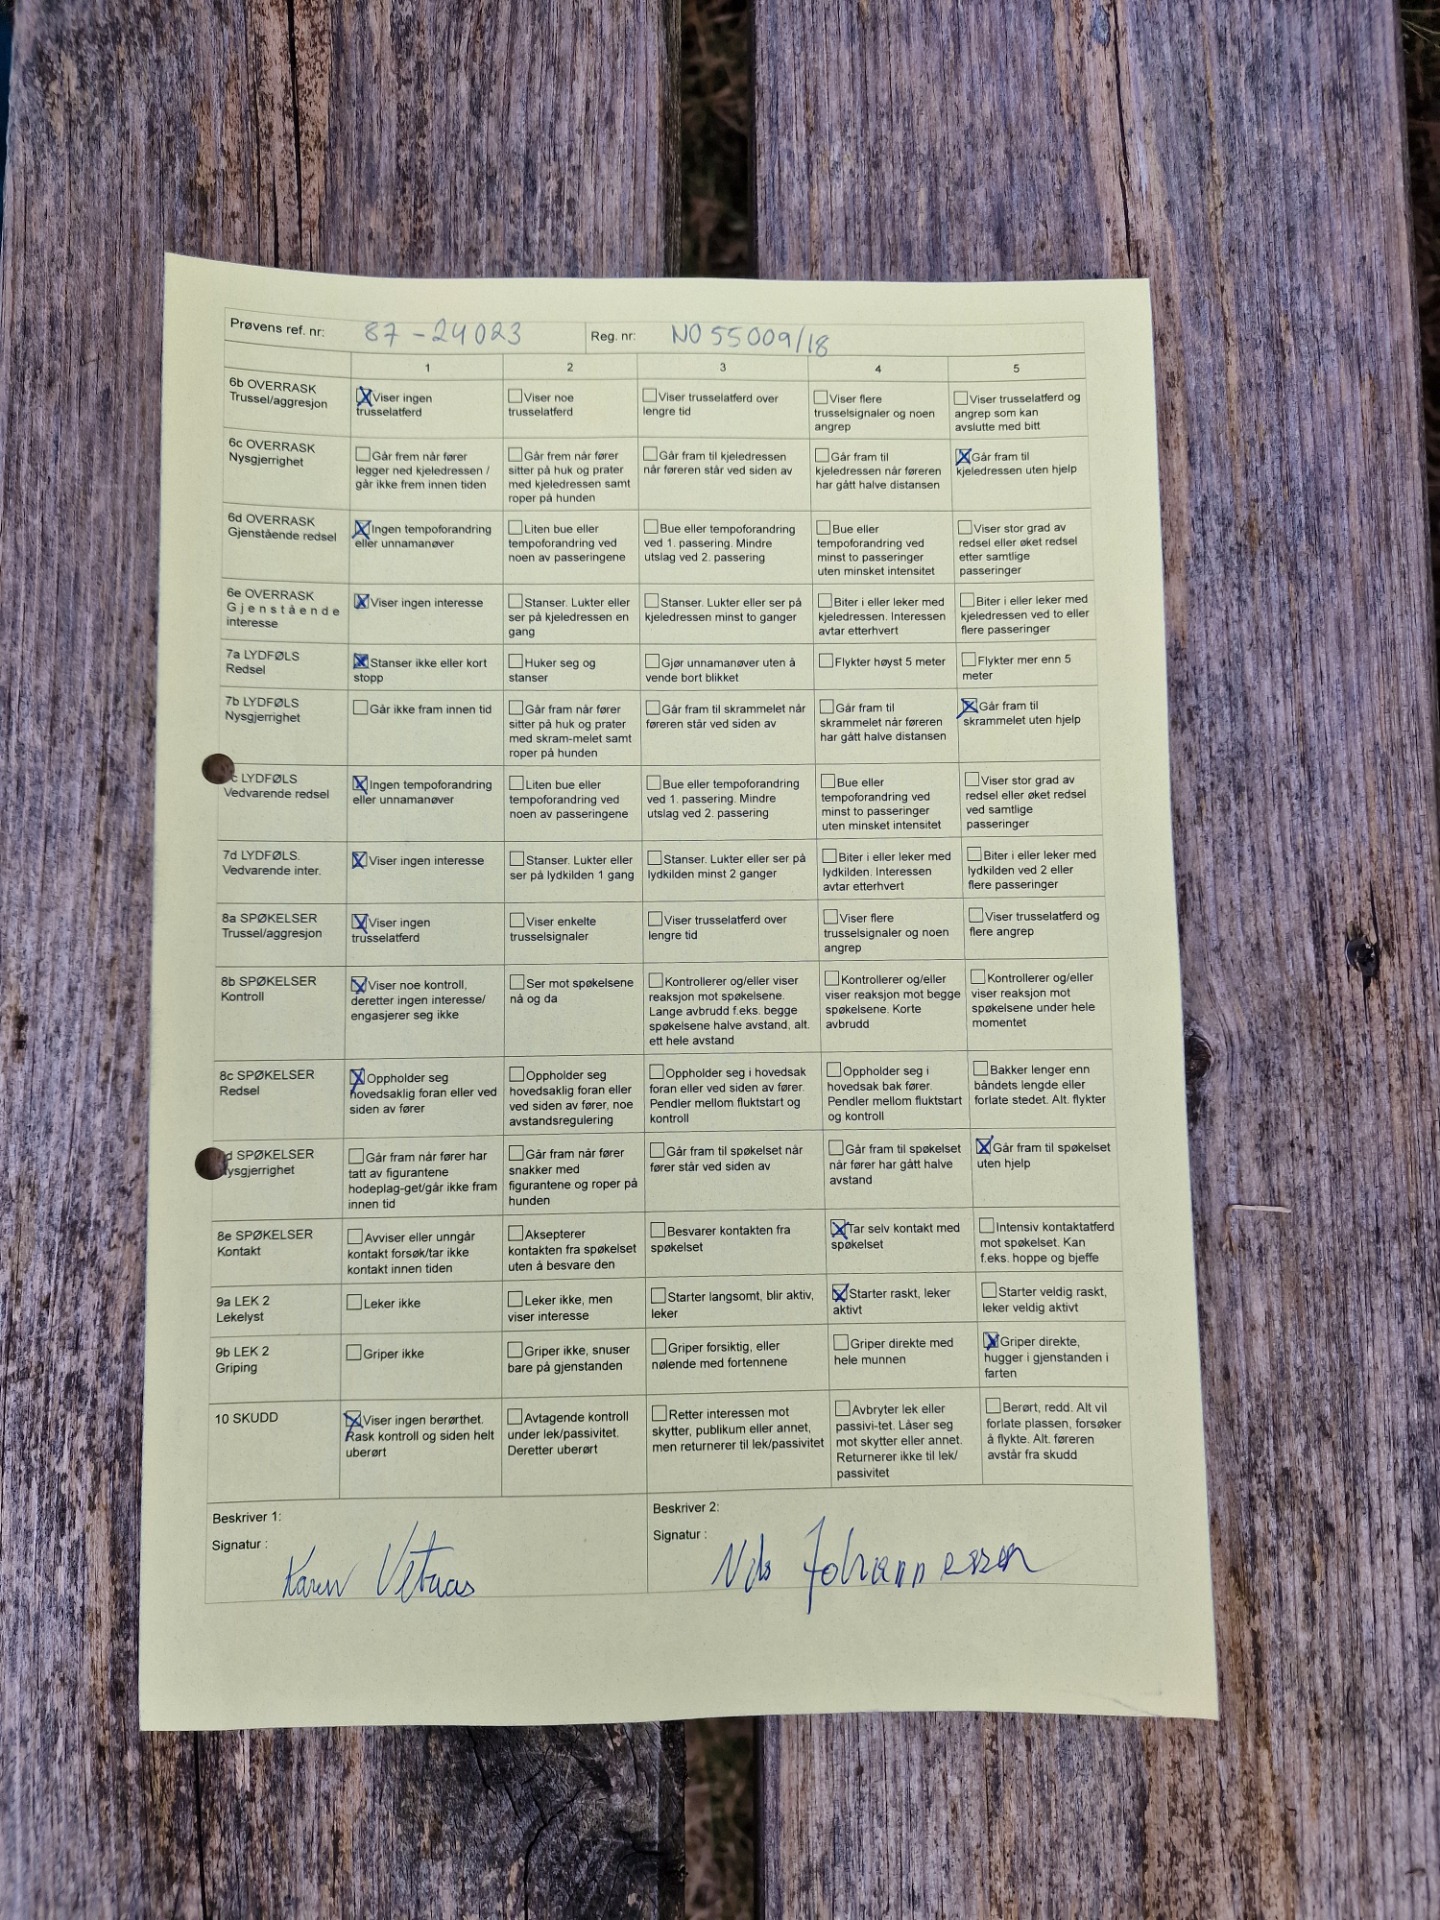 Prøvens ref. nr: 87-24023 Reg. nr: NO 55009/18
1 2 3 4 5
6b OVERRASK
Trussel/aggresjon
Viser ingen
trusselatferd
Viser noe
trusselatferd
Viser trusselatferd over
lengre tid
Viser flere
trusselsignaler og noen
angrep
Viser trusselatferd og
angrep som kan
avslutte med bitt
6c OVERRASK
Nysgjerrighet
Går frem når fører
legger ned kjeledressen /
går ikke frem innen tiden
Går frem når fører
sitter på huk og prater
med kjeledressen samt
roper på hunden
Går fram til kjeledressen
når føreren står ved siden av
Går fram til
kjeledressen når føreren
har gått halve distansen
Går fram til
kjeledressen uten hjelp
6d OVERRASK
Gjenstående redsel
Ingen tempoforandring
eller unnamanøver
Liten bue eller
tempoforandring ved
noen av passeringene
Bue eller tempoforandring
ved 1. passering. Mindre
utslag ved 2. passering
Bue eller
tempoforandring ved
minst to passeringer
uten minsket intensitet
Viser stor grad av
redsel eller øket redsel
etter samtlige
passeringer
6e OVERRASK
Gjenstående
interesse
Viser ingen interesse
Stanser. Lukter eller
ser på kjeledressen en
gang
Stanser. Lukter eller ser på
kjeledressen minst to ganger
Biter i eller leker med
kjeledressen. Interessen
avtar etterhvert
Biter i eller leker med
kjeledressen ved to eller
flere passeringer
7a LYDFØLS
Redsel
Stanser ikke eller kort
stopp
Huker seg og
stanser
Gjør unnamanøver uten å
vende bort blikket
Flykter høyst 5 meter
Flykter mer enn 5
meter
7b LYDFØLS
Nysgjerrighet
Går ikke fram innen tid
Går fram når fører
sitter på huk og prater
med skram-melet samt
roper på hunden
Går fram til skrammelet når
føreren står ved siden av
Går fram til
skrammelet når føreren
har gått halve distansen
Går fram til
skrammelet uten hjelp
c LYDFØLS
Vedvarende redsel
Ingen tempoforandring
eller unnamanøver
Liten bue eller
tempoforandring ved
noen av passeringene
Bue eller tempoforandring
ved 1. passering. Mindre
utslag ved 2. passering
Bue eller
tempoforandring ved
minst to passeringer
uten minsket intensitet
Viser stor grad av
redsel eller øket redsel
ved samtlige
passeringer
7d LYDFØLS.
Vedvarende inter.
Viser ingen interesse
Stanser. Lukter eller
ser på lydkilden 1 gang
Stanser. Lukter eller ser på
lydkilden minst 2 ganger
Biter i eller leker med
lydkilden. Interessen
avtar etterhvert
Biter i eller leker med
lydkilden ved 2 eller
flere passeringer
8a SPØKELSER
Trussel/aggresjon
Viser ingen
trusselatferd
Viser enkelte
trusselsignaler
Viser trusselatferd over
lengre tid
Viser flere
trusselsignaler og noen
angrep
Viser trusselatferd og
flere angrep
8b SPØKELSER
Kontroll
Viser noe kontroll,
deretter ingen interesse/
engasjerer seg ikke
Ser mot spøkelsene
nå og da
Kontrollerer og/eller viser
reaksjon mot spøkelsene.
Lange avbrudd f.eks. begge
spøkelsene halve avstand, alt.
ett hele avstand
Kontrollerer og/eller
viser reaksjon mot begge
spøkelsene. Korte
avbrudd
Kontrollerer og/eller
viser reaksjon mot
spøkelsene under hele
momentet
8c SPØKELSER
Redsel
Oppholder seg
hovedsaklig foran eller ved
siden av fører
Oppholder seg
hovedsaklig foran eller
ved siden av fører, noe
avstandsregulering
Oppholder seg i hovedsak
foran eller ved siden av fører.
Pendler mellom fluktstart og
kontroll
Oppholder seg i
hovedsak bak fører.
Pendler mellom fluktstart
og kontroll
Bakker lenger enn
båndets lengde eller
forlate stedet. Alt. flykter
d SPØKELSER
ysgjerrighet
Går fram når fører har
tatt av figurantene
hodeplag-get/går ikke fram
innen tid
Går fram når fører
snakker med
figurantene og roper på
hunden
Går fram til spøkelset når
fører står ved siden av
Går fram til spøkelset
når fører har gått halve
avstand
Går fram til spøkelset
uten hjelp
8e SPØKELSER
Kontakt
Avviser eller unngår
kontakt forsøk/tar ikke
kontakt innen tiden
Aksepterer
kontakten fra spøkelset
uten å besvare den
Besvarer kontakten fra
spøkelset
Tar selv kontakt med
spøkelset
Intensiv kontaktatferd
mot spøkelset. Kan
f.eks. hoppe og bjeffe
9a LEK 2
Lekelyst
Leker ikke
Leker ikke, men
viser interesse
Starter langsomt, blir aktiv,
leker
Starter raskt, leker
aktivt
Starter veldig raskt,
leker veldig aktivt
9b LEK 2
Griping
Griper ikke
Griper ikke, snuser
bare på gjenstanden
Griper forsiktig, eller
nølende med fortennene
Griper direkte med
hele munnen
Griper direkte,
hugger i gjenstanden i
farten
10 SKUDD
Viser ingen berørthet.
Rask kontroll og siden helt
uberørt
Avtagende kontroll
under lek/passivitet.
Deretter uberørt
Retter interessen mot
skytter, publikum eller annet,
men returnerer til lek/passivitet
Avbryter lek eller
passivi-tet. Låser seg
mot skytter eller annet.
Returnerer ikke til lek/
passivitet
Berørt, redd. Alt vil
forlate plassen, forsøker
å flykte. Alt. føreren
avstår fra skudd
Beskriver 1:
Signatur :
Karen Vetaas
Beskriver 2:
Signatur :
Nils Johannessen